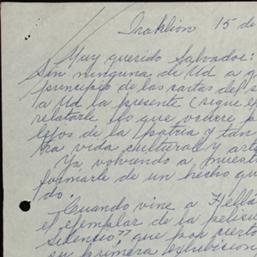 Iraklion 15 de
Muy querido Salvador:
Sin ninguna de Ud a q
principio de las cartas del s
a Ud la presente (sigue el
relatarle lo que ocurre p
lejos de la patria y tan
tra vida cultural y art
Ya volviendo a nuest
formarle de un hecho qu
do.
Cuando vine a Hellá
el ejemplar de la pelícu
silencio", que por cierto
en primera exhibición